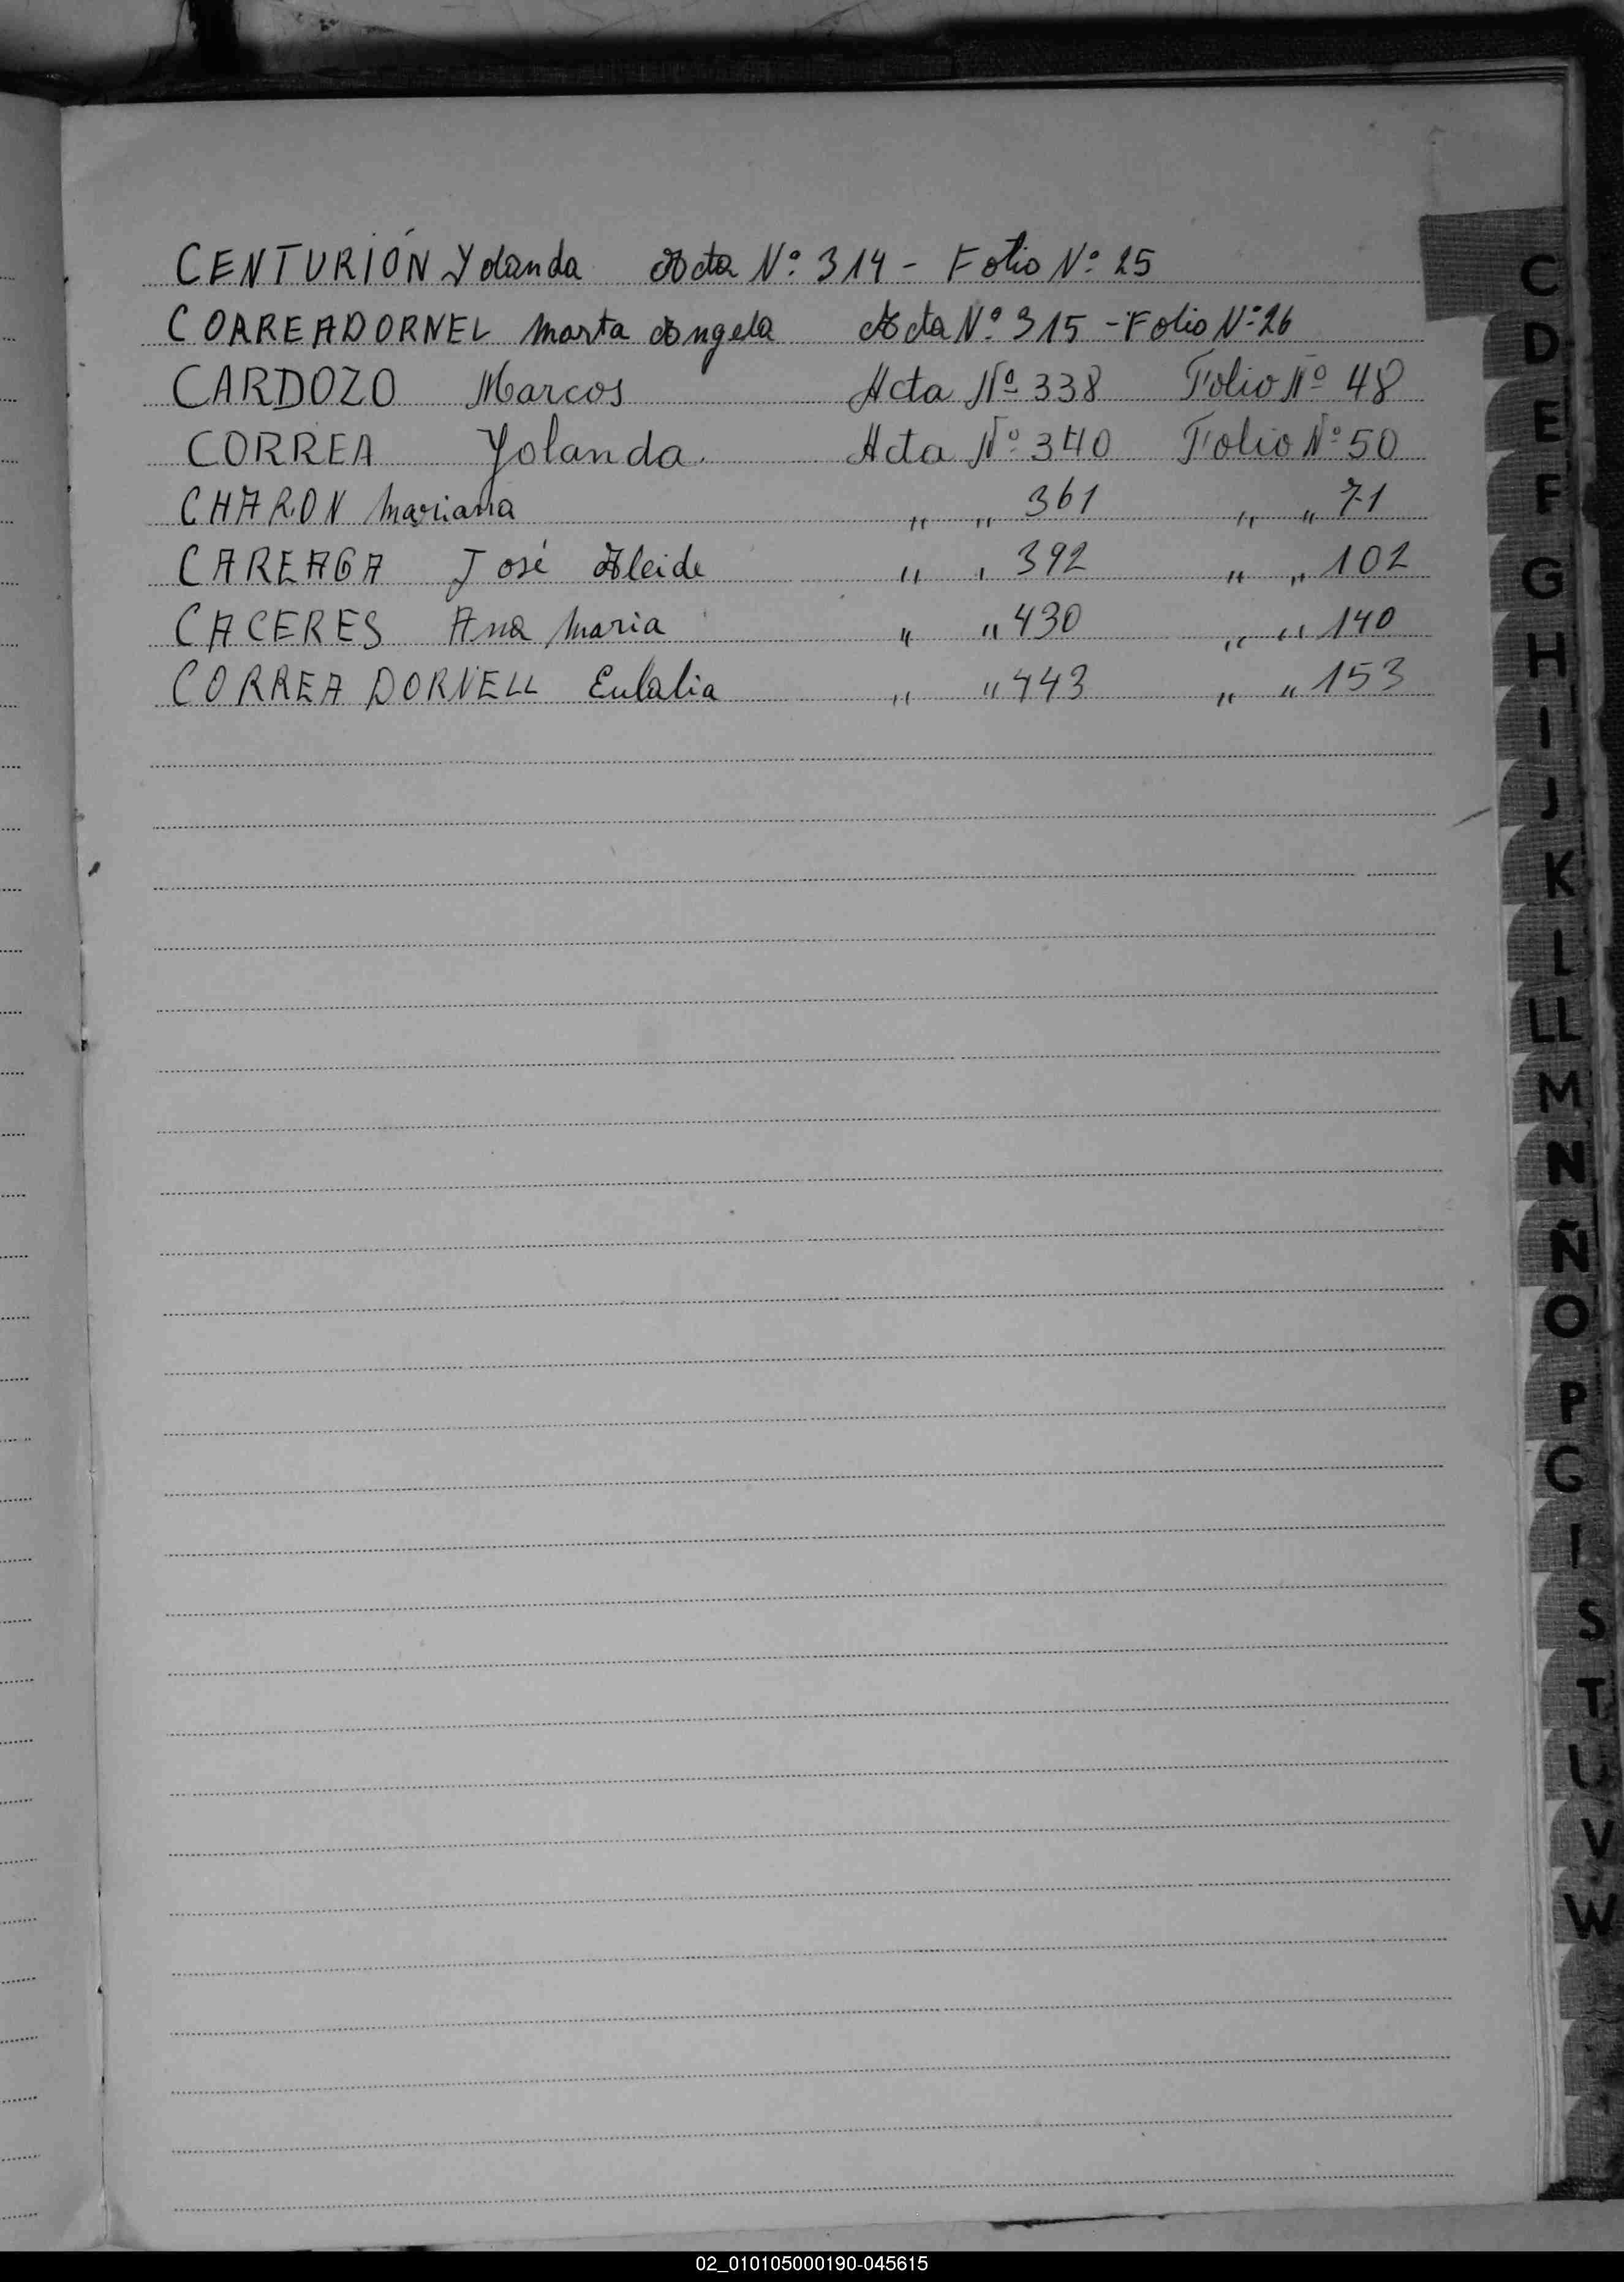 CENTURIÓN Yolanda Acta Nº 314 - Folio Nº 25
CORREA DORNEL Marta Angela Acta Nº 315 - Folio Nº 26
CARDOZO Marcos Acta Nº 338 Folio Nº 48
CORREA Yolanda. Acta Nº 340 Folio Nº 50
CHARON Mariana " " 361 " " 71
CAREAGA José Aleide " " 392 " " 102
CACERES Ana Maria " " 430 " " 140
CORREA DORNELL Eulalia " " 443 " " 153
C
D
E
F
G
H
I
J
K
L
LL
M
N
Ñ
O
P
S
T
U
V
W
02_010105000190-045615